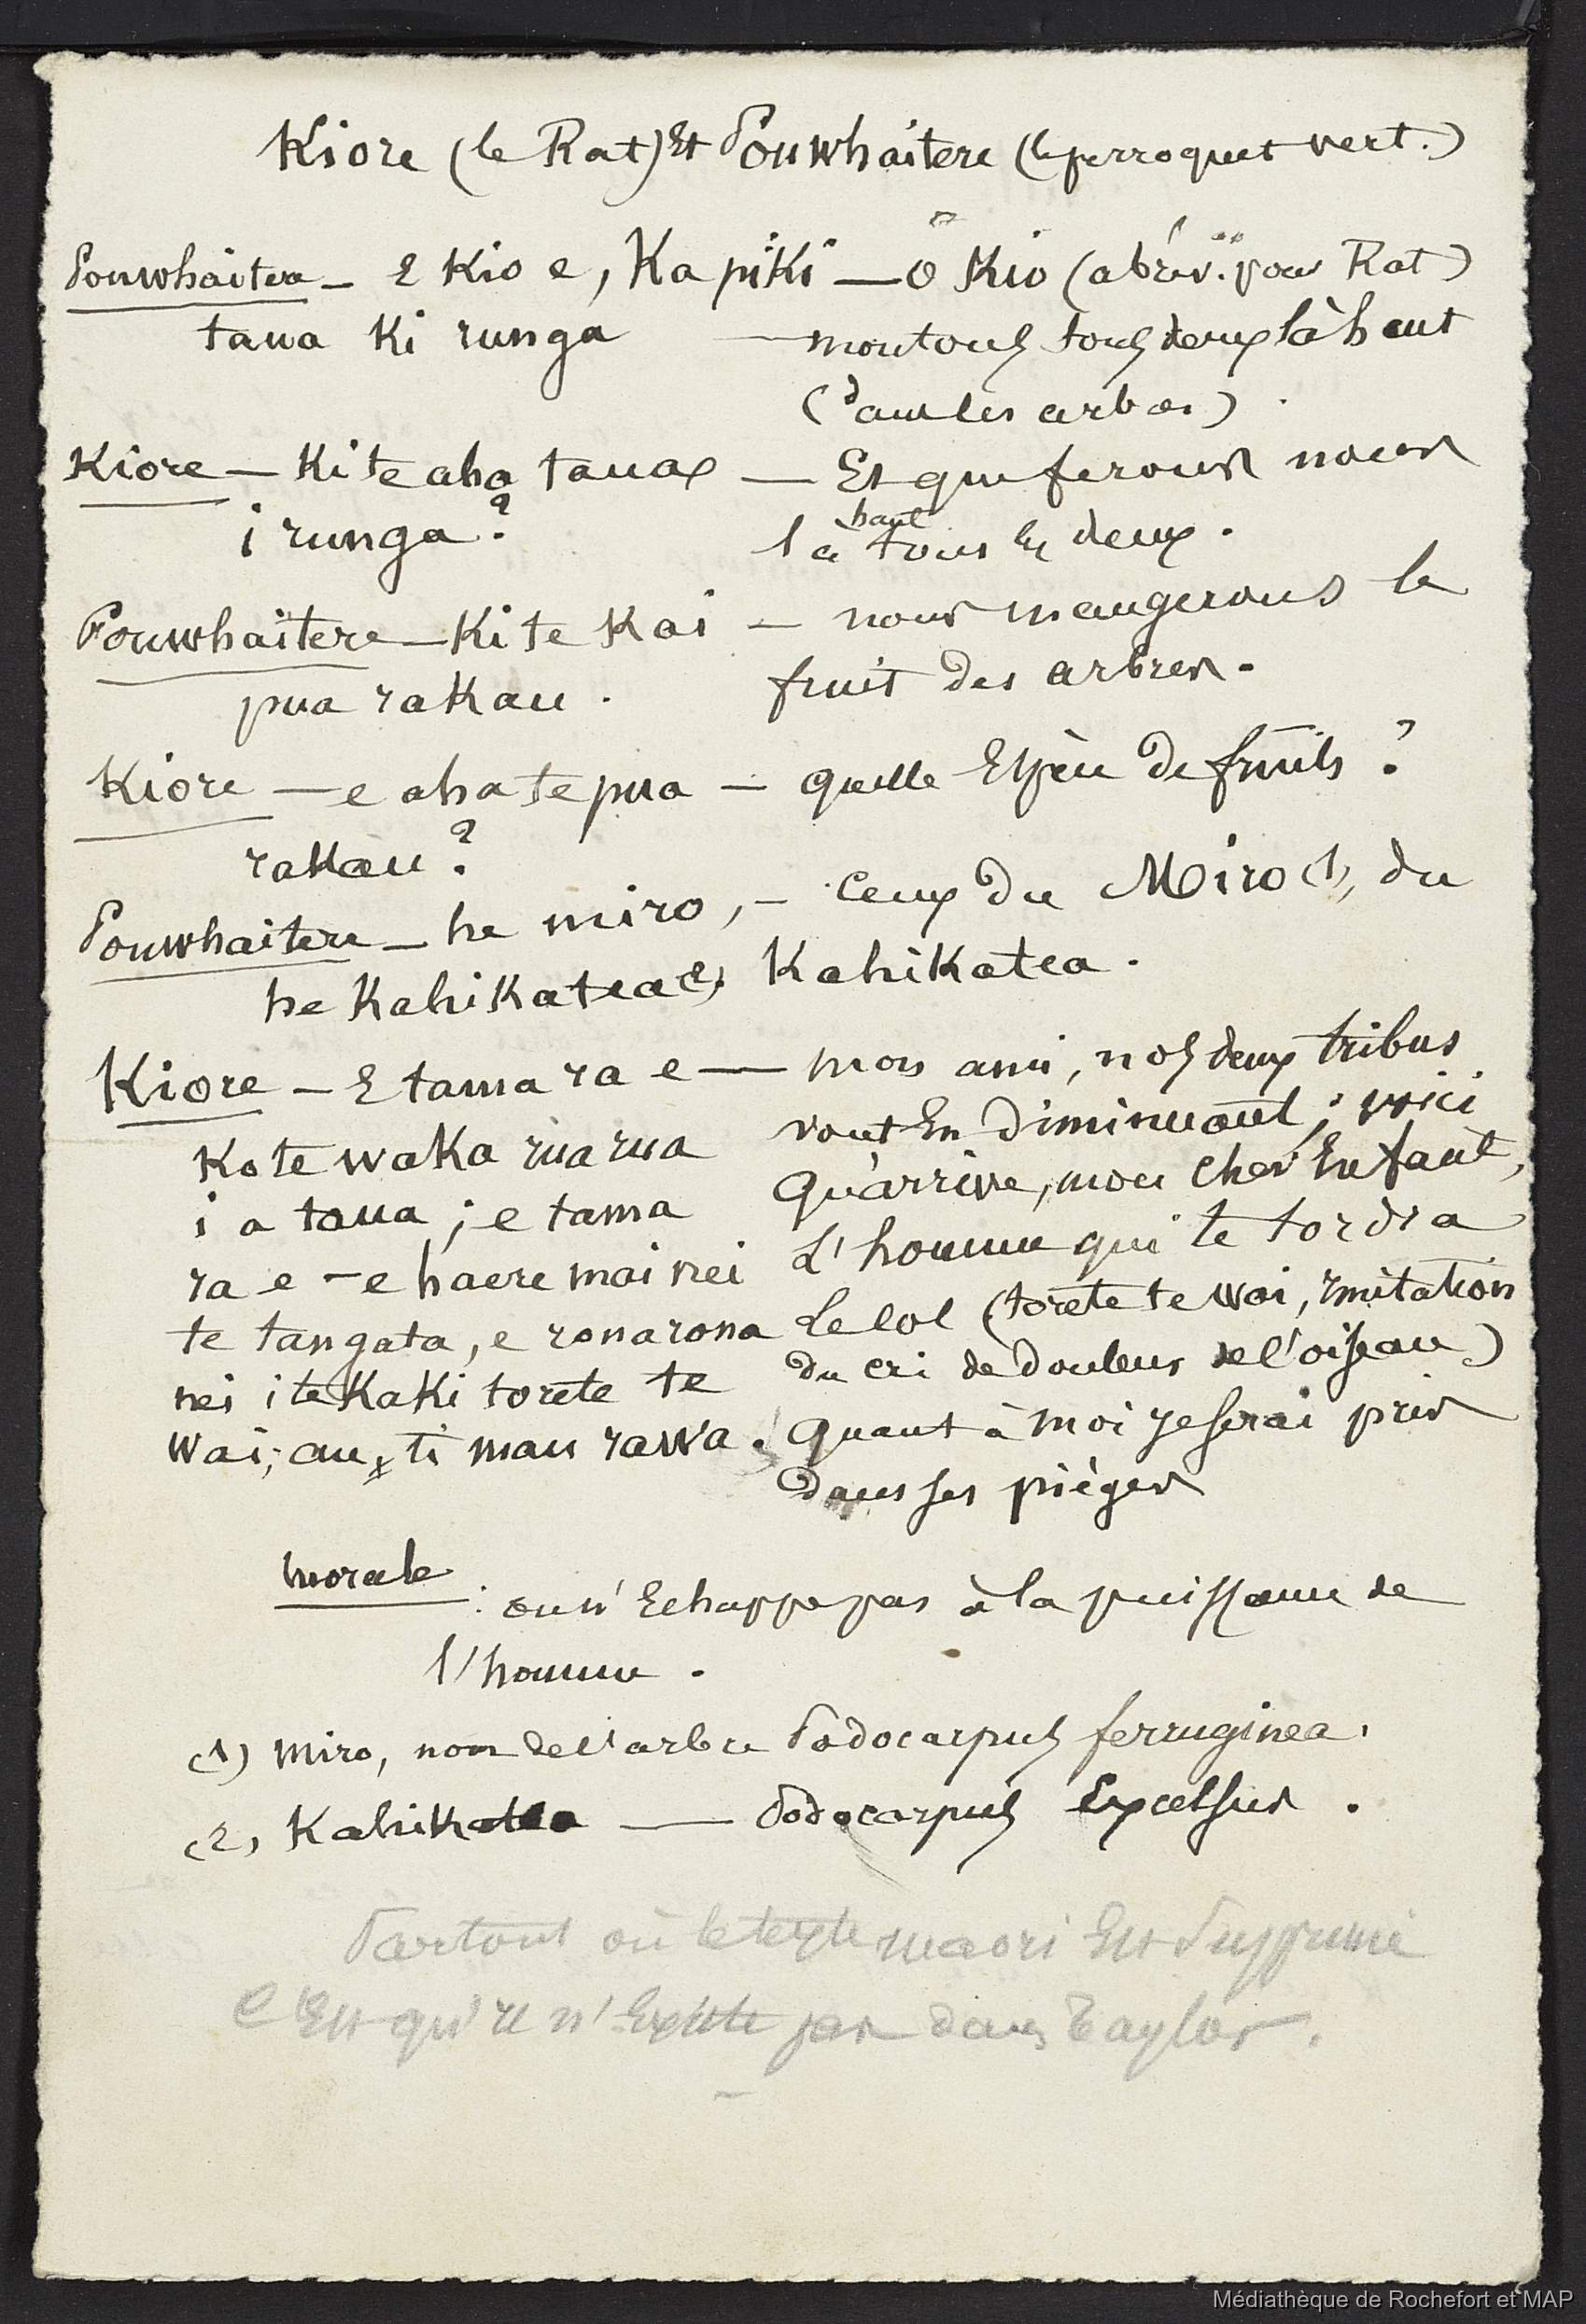 Kiore (le Rat) Et Pouwhaitere (le perroquet vert.)
Pouwhaitere - E Kio e, Ka piki — ô Kio (abrév. pour Rat)
taua Ki runga — montons tous deux là haut
(dans les arbres).
Kiore - Ki te aha taua — Et que ferons nous
i runga? là haut tous les deux.
Pouwhaitere - Ki te Kai — nous mangerons le
pua rakau. fruit des arbres.
Kiore - e aha te pua — quelle Espèce de fruits?
rakau?
Pouwhaitere - he miro, - Ceux du Miro (1), du
he Kahikatea (2). Kahikatea.
Kiore - E tama ra e — mon ami, nos deux tribus
Ko te waka rua rua vont En diminuant; voici
i a taua; e tama qu'arrive, mon cher Enfant,
ra e - e haere mai nei L'homme qui te tordra
te tangata, e rona rona Le col (torete te wai, imitation
nei i te Kaki torete te du cri de douleur de l'oiseau)
wai; au x ti mau rawa. Quant à moi je serai pris
dans ses pièges
morale : on n'Echappe pas à la puissance de
l'homme.
(1) Miro, nom de l'arbre Podocarpus ferruginea.
(2) Kahikatea — Podocarpus Excelsus.
Partout où le texte maori Est supprimé
C'Est qu'il n'Existe pas dans Taylor.
Médiathèque de Rochefort et MAP